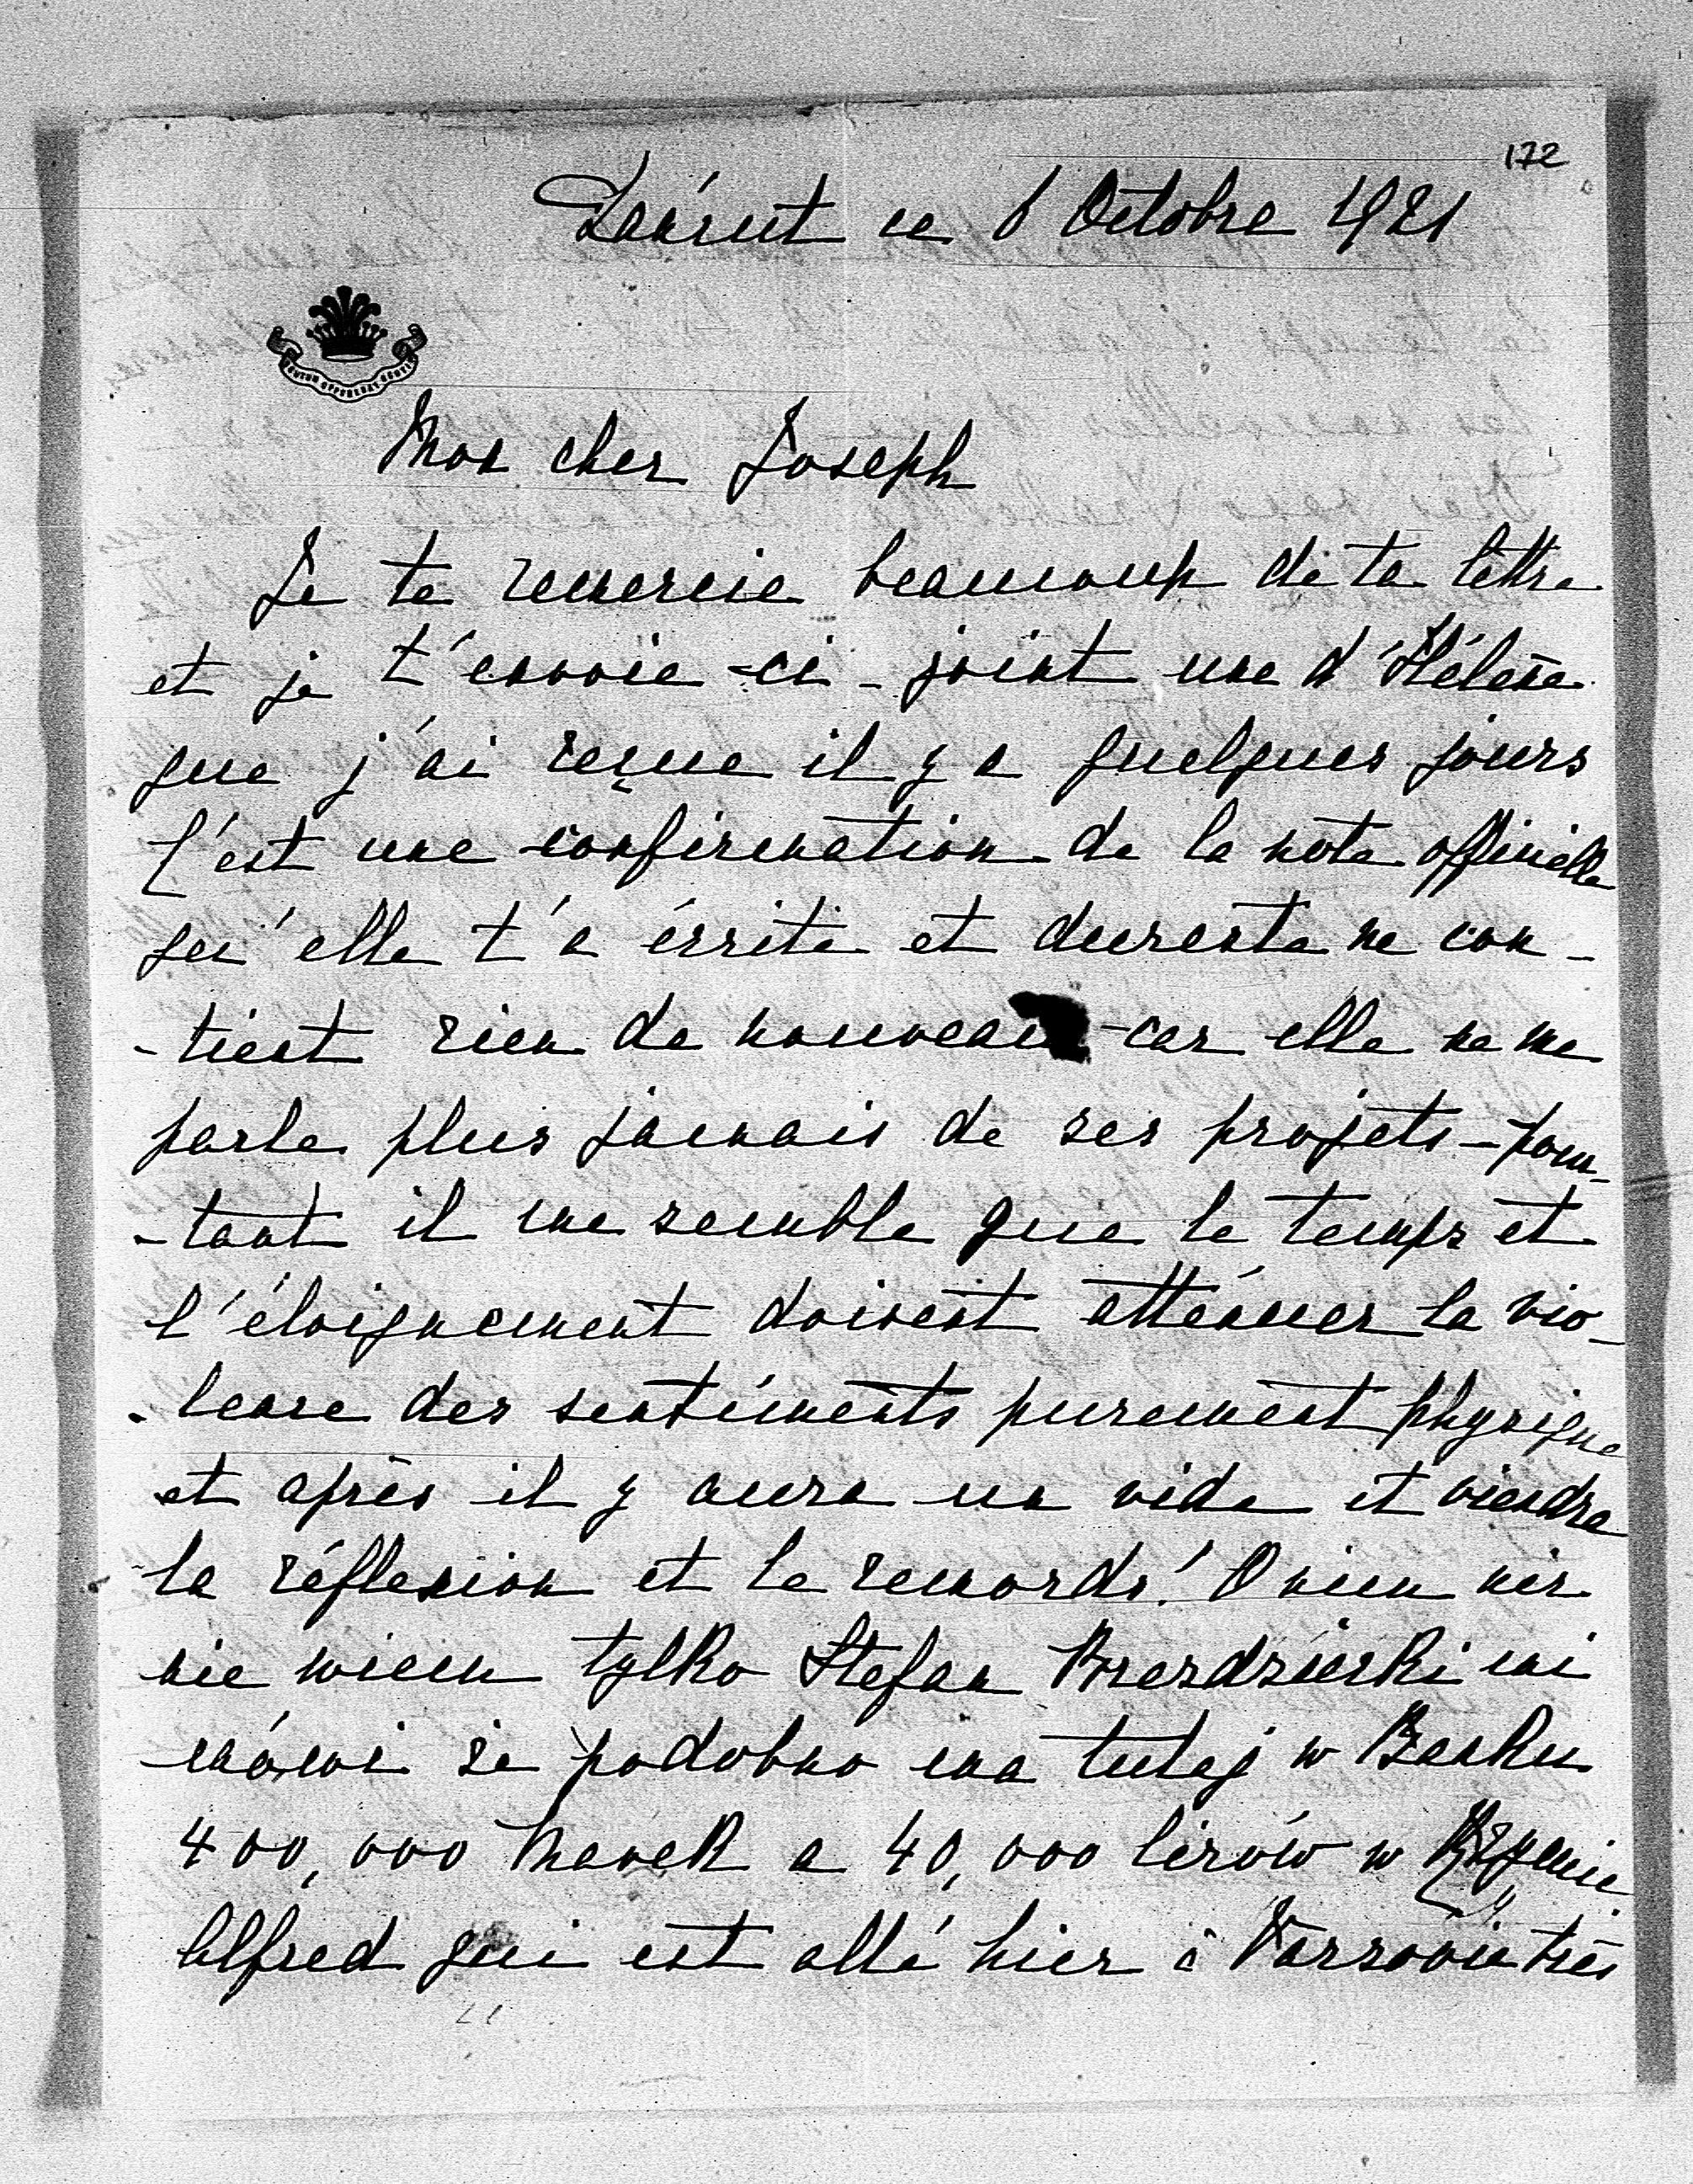 172
Łańcut ce 6 Octobre 1921
COMCUM OPPONERAT
Mon cher Joseph
Je te remercie beaucoup de ta lettre
et je t'envoie ci-joint une d'Hélène
que j'ai reçue il y a quelques jours
C'est une confirmation de la note officielle
qu'elle t'a érrite et dureste ne con-
-tient rien de nouveau car elle ne me
parle plus jamais de ses projets - pour-
-tant il me semble que le temps et
l'éloignement doivent atténuer la vio-
-lence des sentiments purement physique
et après il y aura un vide et viendra
la réflexion et le remords! O nim nic
nie wiem tylko Stefan Brzozdzierski mi
mówi że podobno ma tutaj w Banku
400,000 Marek a 40,000 lirów w Rzymie
Alfred qui est allé hier à Varsovie très